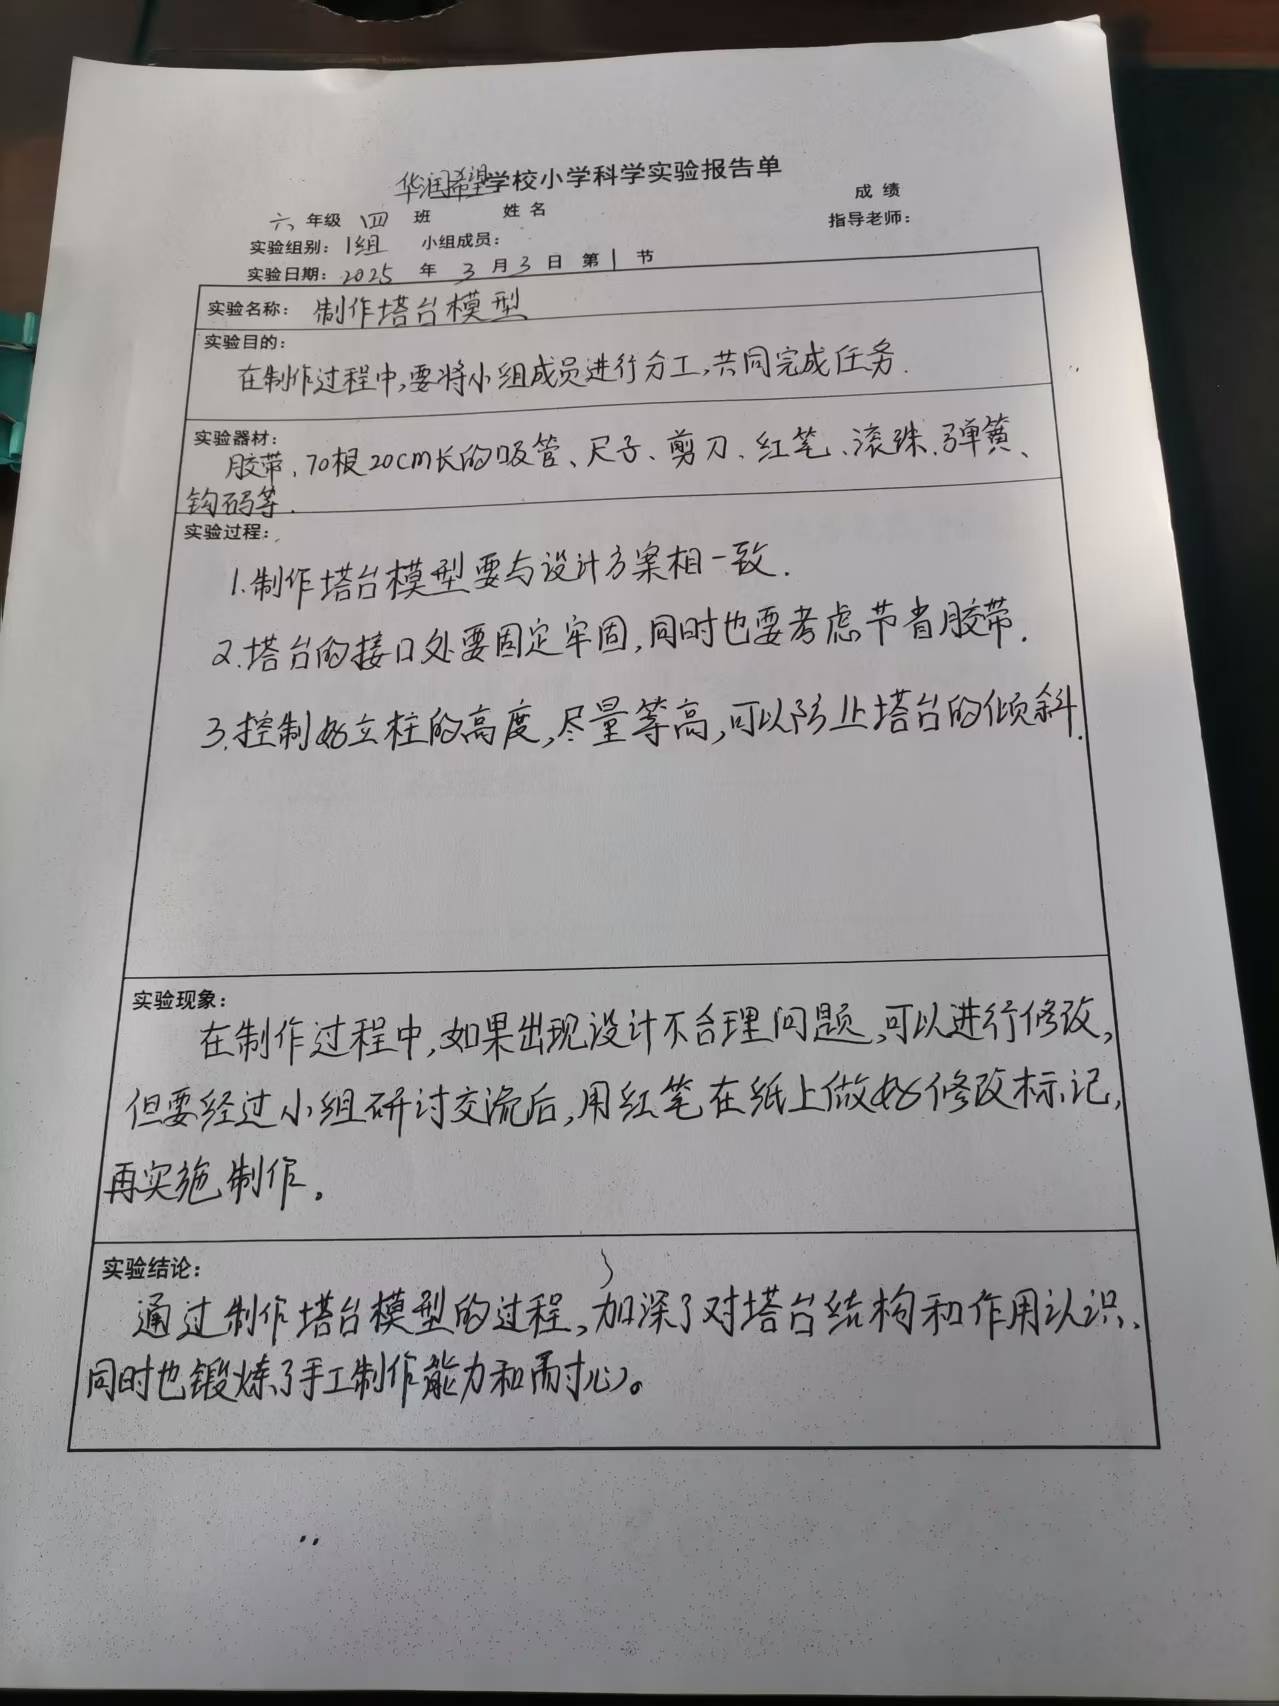 华润希望学校小学科学实验报告单
六 年级 四 班 姓 名 成 绩
实验组别：1组 小组成员： 指导老师：
实验日期：2025 年 3 月 3 日 第 1 节
实验名称：制作塔台模型
实验目的：
在制作过程中,要将小组成员进行分工,共同完成任务.
实验器材：
胶带、70根20cm长的吸管、尺子、剪刀、红笔、滚珠、弹簧、
钩码等.
实验过程：
1.制作塔台模型要与设计方案相一致.
2.塔台的接口处要固定牢固,同时也要考虑节省胶带.
3.控制好立柱的高度,尽量等高,可以防止塔台的倾斜.
实验现象：
在制作过程中,如果出现设计不合理问题,可以进行修改,
但要经过小组研讨交流后,用红笔在纸上做好修改标记,
再实施制作。
实验结论：
通过制作塔台模型的过程,加深了对塔台结构和作用认识、
同时也锻炼了手工制作能力和耐心。